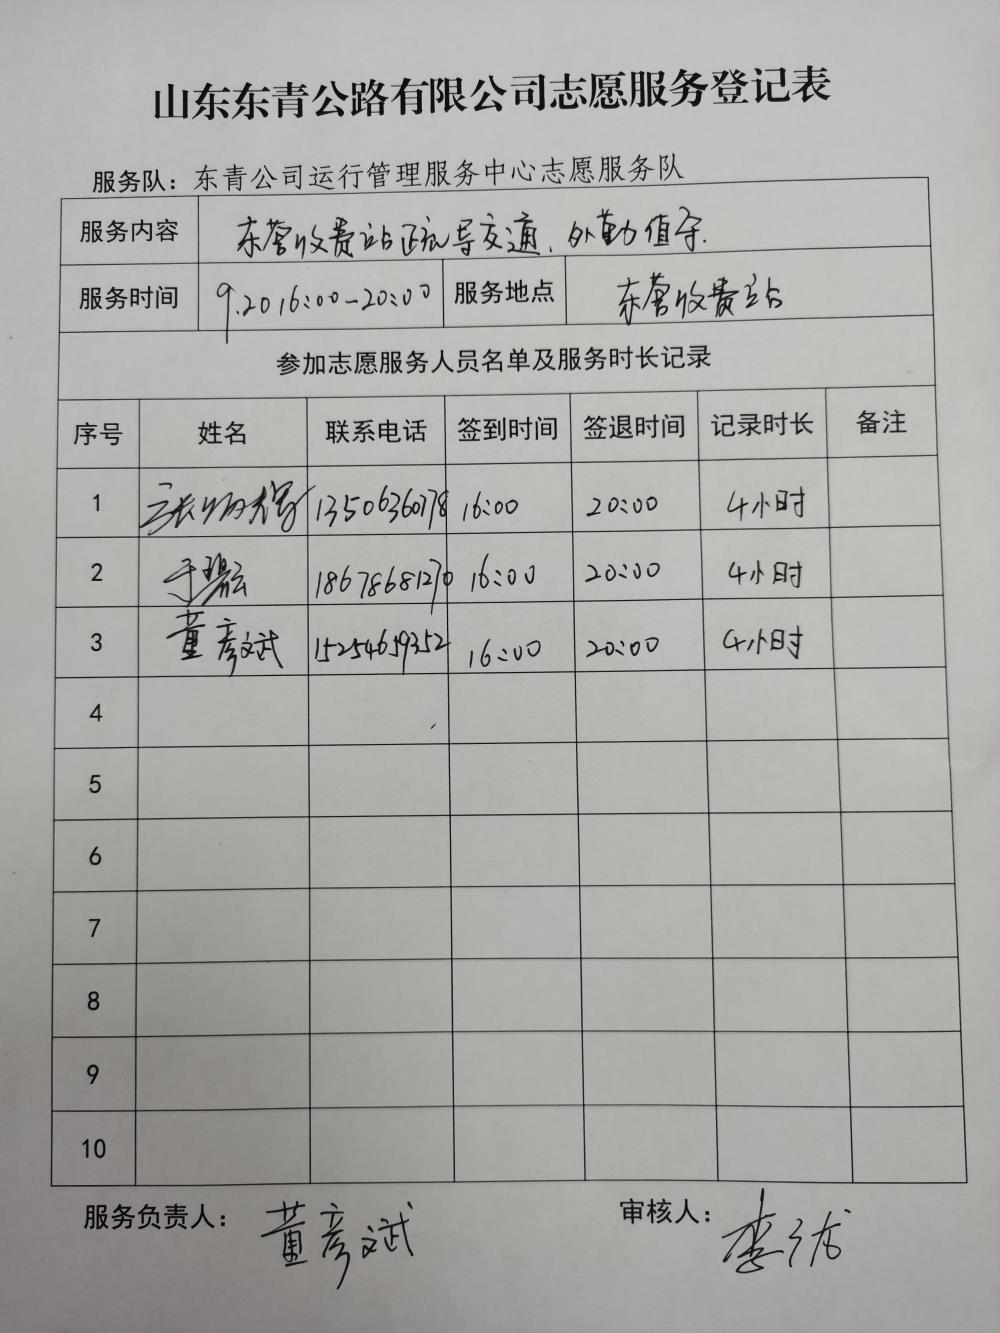 山东东青公路有限公司志愿服务登记表
服务队：东青公司运行管理服务中心志愿服务队
服务内容 东营收费站疏导交通、外勤值守.
服务时间 9.20 16:00-20:00 服务地点 东营收费站
参加志愿服务人员名单及服务时长记录
序号 姓名 联系电话 签到时间 签退时间 记录时长 备注
1 13506360178 16:00 20:00 4小时
2 于碧云 18678681270 16:00 20:00 4小时
3 董彦斌 15254659352 16:00 20:00 4小时
4
5
6
7
8
9
10
服务负责人： 董彦斌 审核人： 李